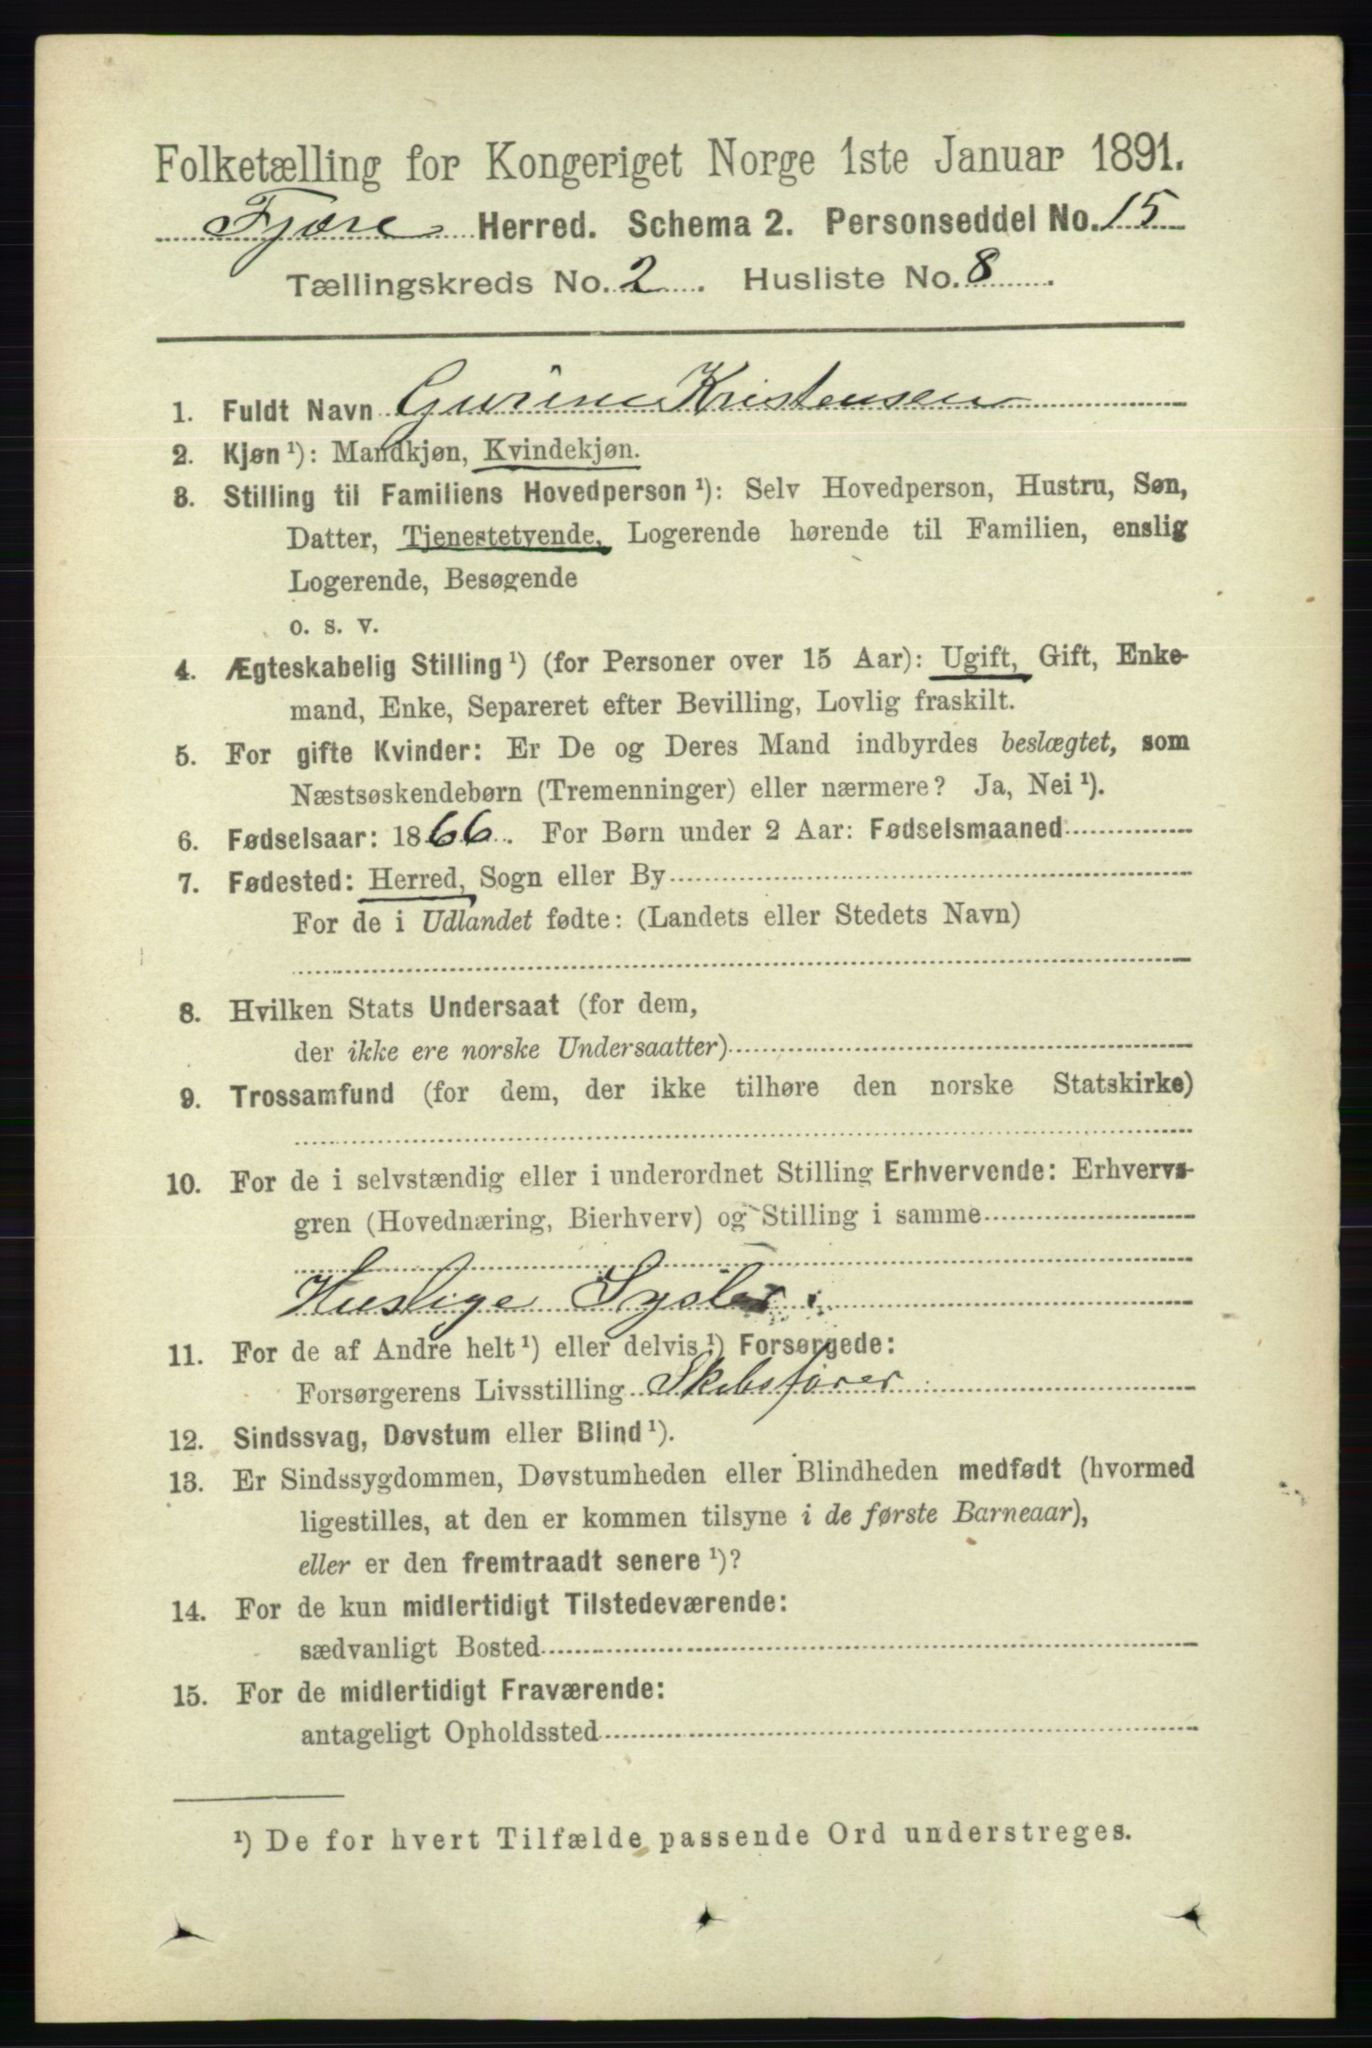 Folketælling for Kongeriget Norge 1ste Januar 1891.
Fjære Herred. Schema 2. Personseddel No. 15
Tællingskreds No. 2. Husliste No. 8.
1. Fuldt Navn Gurine Kristensen
2. Kjøn ¹): Mandkjøn, Kvindekjøn.
3. Stilling til Familiens Hovedperson ¹): Selv Hovedperson, Hustru, Søn,
Datter, Tjenestetyende, Logerende hørende til Familien, enslig
Logerende, Besøgende
o. s. v.
4. Ægteskabelig Stilling ¹) (for Personer over 15 Aar): Ugift, Gift, Enke-
mand, Enke, Separeret efter Bevilling, Lovlig fraskilt.
5. For gifte Kvinder: Er De og Deres Mand indbyrdes beslægtet, som
Næstsøskendebørn (Tremenninger) eller nærmere? Ja, Nei ¹).
6. Fødselsaar: 1866. For Børn under 2 Aar: Fødselsmaaned
7. Fødested: Herred, Sogn eller By
For de i Udlandet fødte: (Landets eller Stedets Navn)
8. Hvilken Stats Undersaat (for dem,
der ikke ere norske Undersaatter)
9. Trossamfund (for dem, der ikke tilhøre den norske Statskirke)
10. For de i selvstændig eller i underordnet Stilling Erhvervende: Erhvervs-
gren (Hovednæring, Bierhverv) og Stilling i samme
Huslige Sysler
11. For de af Andre helt ¹) eller delvis ¹) Forsørgede:
Forsørgerens Livsstilling Skibsfører
12. Sindssvag, Døvstum eller Blind ¹).
13. Er Sindssygdommen, Døvstumheden eller Blindheden medfødt (hvormed
ligestilles, at den er kommen tilsyne i de første Barneaar),
eller er den fremtraadt senere ¹)?
14. For de kun midlertidigt Tilstedeværende:
sædvanligt Bosted
15. For de midlertidigt Fraværende:
antageligt Opholdssted
¹) De for hvert Tilfælde passende Ord understreges.